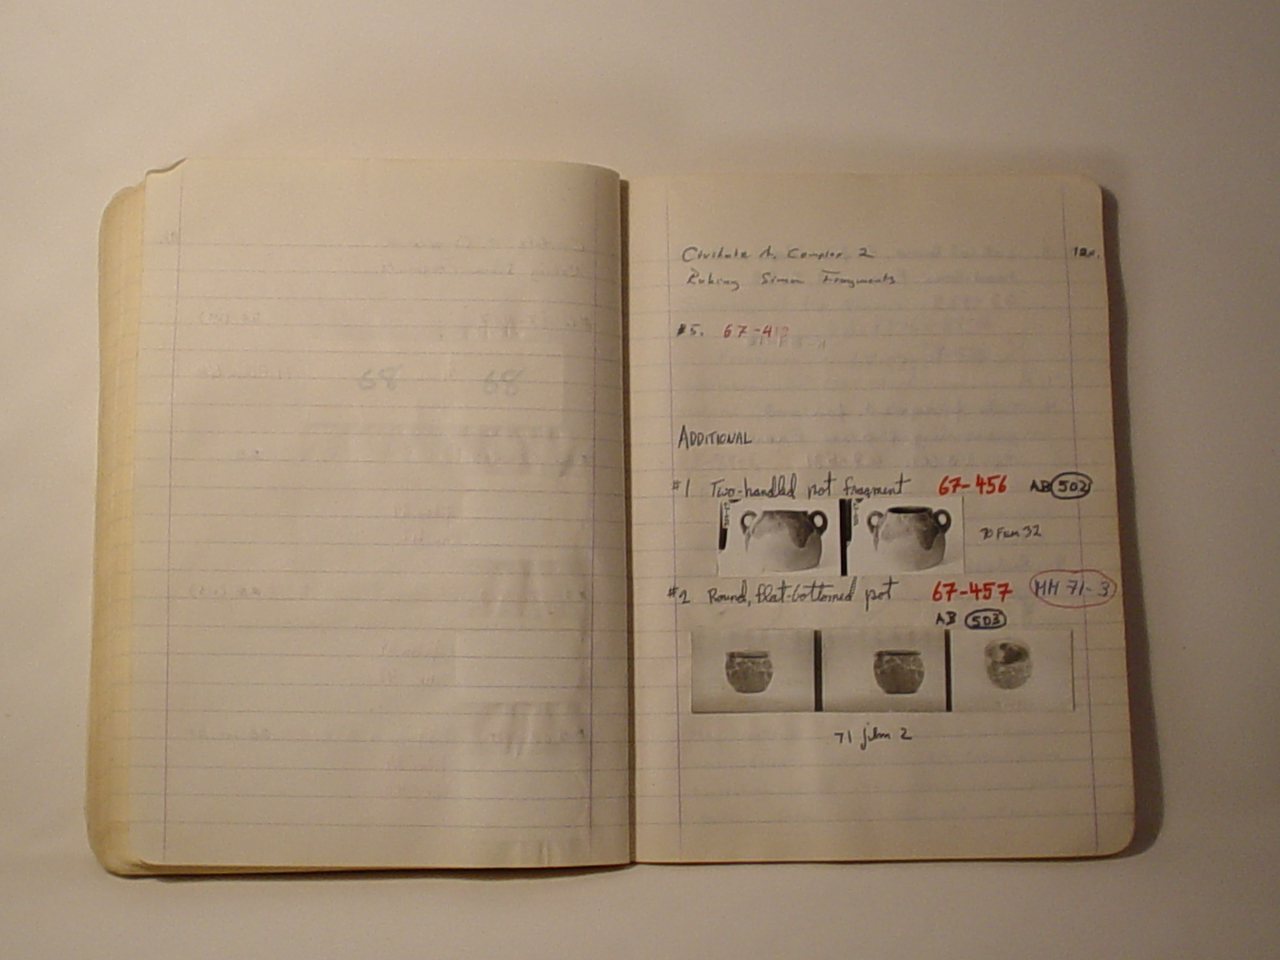 Civitate A, Complex 2
Fragments
#5. 67-41
ADDITIONAL
#1 Two-handled pot fragment 67-456 AB 502
70 Film 32
#2 Round, flat-bottomed pot 67-457 MM 71-3
AB 503
71 film 2